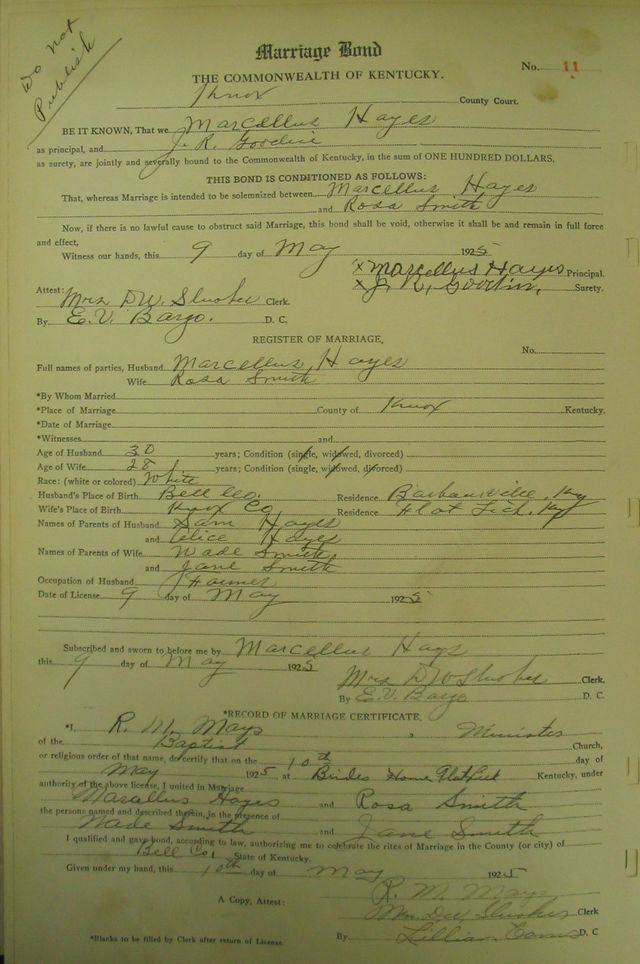 Do not
Publish
Marriage Bond
No. 11
THE COMMONWEALTH OF KENTUCKY.
Knox County Court.
BE IT KNOWN, That we Marcellus Hayes
as principal, and J. R. Goodin
as surety, are jointly and severally bound to the Commonwealth of Kentucky, in the sum of ONE HUNDRED DOLLARS,
THIS BOND IS CONDITIONED AS FOLLOWS:
That, whereas Marriage is intended to be solemnized between Marcellus Hayes
and Rosa Smith
Now, if there is no lawful cause to obstruct said Marriage, this bond shall be void, otherwise it shall be and remain in full force
and effect,
Witness our hands, this 9 day of May 1925
x Marcellus Hayes Principal.
Attest: x J. R. Goodin. Surety.
Mrs D W Slusher Clerk.
By E. V. Bargo. D. C.
REGISTER OF MARRIAGE,
No.
Full names of parties, Husband Marcellus Hayes
Wife Rosa Smith
*By Whom Married
*Place of Marriage County of Knox Kentucky.
*Date of Marriage
*Witnesses and
Age of Husband 30 years; Condition (single, widowed, divorced)
Age of Wife 28 years; Condition (single, widowed, divorced)
Race: (white or colored) White
Husband's Place of Birth Bell Co. Residence Barbourville, Ky
Wife's Place of Birth Knox Co Residence Flat Lick, Ky
Names of Parents of Husband Sam Hayes
and Alice Hayes
Names of Parents of Wife Wade Smith
and Jane Smith
Occupation of Husband Farmer
Date of License 9 day of May 1925
Subscribed and sworn to before me by Marcellus Hays
this 9 day of May 1925
Mrs D W Slusher Clerk,
By E. V. Bargo D. C.
*RECORD OF MARRIAGE CERTIFICATE,
*I, R. M. Mays, Minister
of the Baptist Church,
or religious order of that name, do certify that on the 10th day of
May 1925, at Brides Home Flatlick Kentucky, under
authority of the above license, I united in Marriage
Marcellus Hayes and Rosa Smith
the persons named and described therein, in the presence of
Wade Smith and Jane Smith
I qualified and gave bond, according to law, authorizing me to celebrate the rites of Marriage in the County (or city) of
Bell Co, State of Kentucky.
Given under my hand, this 10th day of May 1925
R. M. Mays
A Copy, Attest: Mrs. D W Slusher Clerk
By Lillian D. C
*Blanks to be filled by Clerk after return of License.